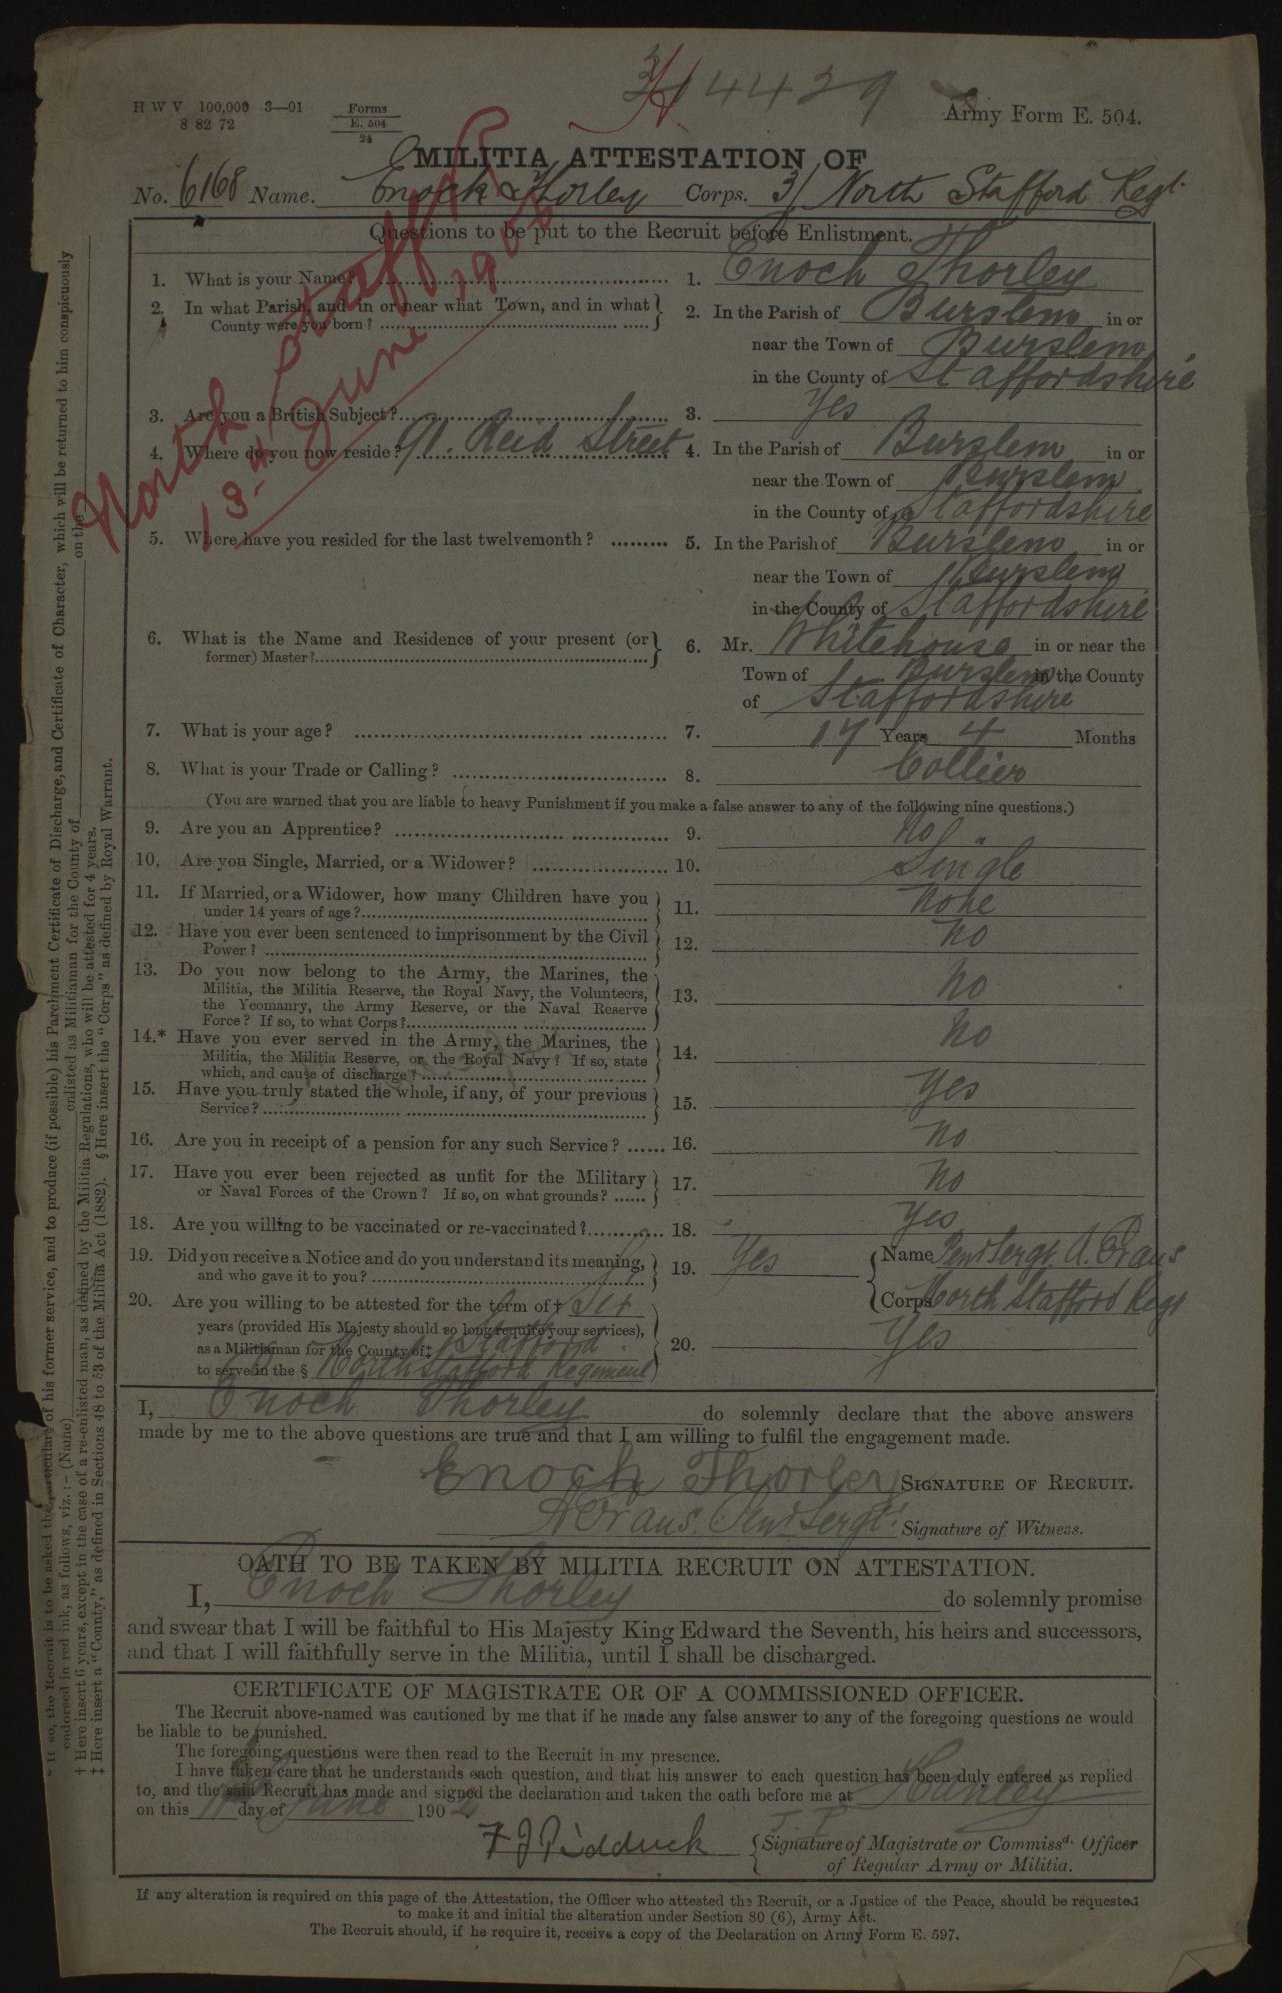 H W V 100,000 3—01
8 82 72
Forms
E. 504
24
3/4439
Army Form E. 504.
MILITIA ATTESTATION OF
No. 6168 Name. Enoch Thorley Corps. 3/ North Stafford Regt.
North Stafford R
13-4 June 1902
Questions to be put to the Recruit before Enlistment.
1. What is your Name? 1. Enoch Thorley
2. In what Parish, and in or near what Town, and in what County were you born? 2. In the Parish of Burslem in or
near the Town of Burslem
in the County of Staffordshire
3. Are you a British Subject? 3. Yes
4. Where do you now reside? 91. Reid Street 4. In the Parish of Burslem in or
near the Town of Burslem
in the County of Staffordshire
5. Where have you resided for the last twelvemonth? 5. In the Parish of Burslem in or
near the Town of Burslem
in the County of Staffordshire
6. What is the Name and Residence of your present (or former) Master? 6. Mr. Whitehouse in or near the
Town of Burslem in the County
of Staffordshire
7. What is your age? 7. 17 Years 4 Months
8. What is your Trade or Calling? 8. Collier
(You are warned that you are liable to heavy Punishment if you make a false answer to any of the following nine questions.)
9. Are you an Apprentice? 9. No
10. Are you Single, Married, or a Widower? 10. Single
11. If Married, or a Widower, how many Children have you
under 14 years of age? 11. None
12. Have you ever been sentenced to imprisonment by the Civil
Power? 12. No
13. Do you now belong to the Army, the Marines, the
Militia, the Militia Reserve, the Royal Navy, the Volunteers,
the Yeomanry, the Army Reserve, or the Naval Reserve
Force? If so, to what Corps? 13. No
14.* Have you ever served in the Army, the Marines, the
Militia, the Militia Reserve, or the Royal Navy? If so, state
which, and cause of discharge? 14. No
15. Have you truly stated the whole, if any, of your previous
Service? 15. Yes
16. Are you in receipt of a pension for any such Service? 16. No
17. Have you ever been rejected as unfit for the Military
or Naval Forces of the Crown? If so, on what grounds? 17. No
18. Are you willing to be vaccinated or re-vaccinated? 18. Yes
19. Did you receive a Notice and do you understand its meaning,
and who gave it to you? 19. Yes Name Penr Sergt. A. Evans
Corps North Stafford Regt
20. Are you willing to be attested for the term of † Six
years (provided His Majesty should so long require your services),
as a Militiaman for the County of ‡ Stafford
to serve in the § North Stafford Regiment 20. Yes
I, Enoch Thorley do solemnly declare that the above answers
made by me to the above questions are true and that I am willing to fulfil the engagement made.
Enoch Thorley SIGNATURE OF RECRUIT.
A Evans. Penr Sergt. Signature of Witness.
OATH TO BE TAKEN BY MILITIA RECRUIT ON ATTESTATION.
I, Enoch Thorley do solemnly promise
and swear that I will be faithful to His Majesty King Edward the Seventh, his heirs and successors,
and that I will faithfully serve in the Militia, until I shall be discharged.
CERTIFICATE OF MAGISTRATE OR OF A COMMISSIONED OFFICER.
The Recruit above-named was cautioned by me that if he made any false answer to any of the foregoing questions he would
be liable to be punished.
The foregoing questions were then read to the Recruit in my presence.
I have taken care that he understands each question, and that his answer to each question has been duly entered as replied
to, and the said Recruit has made and signed the declaration and taken the oath before me at Hanley
on this day of June 1902
F J Pidduck J. P. Signature of Magistrate or Commissd. Officer
of Regular Army or Militia.
If any alteration is required on this page of the Attestation, the Officer who attested the Recruit, or a Justice of the Peace, should be requested
to make it and initial the alteration under Section 80 (6), Army Act.
The Recruit should, if he require it, receive a copy of the Declaration on Army Form E. 597.
* If so, the Recruit is to be asked the particulars of his former service, and to produce (if possible) his Parchment Certificate of Discharge, and Certificate of Character, which will be returned to him conspicuously
endorsed in red ink, as follows, viz.:— (Name) enlisted as Militiaman for the County of on the
† Here insert 6 years, except in the case of a re-enlisted man, as defined by the Militia Regulations, who will be attested for 4 years.
‡ Here insert a "County," as defined in Sections 48 to 53 of the Militia Act (1882). § Here insert the "Corps" as defined by Royal Warrant.